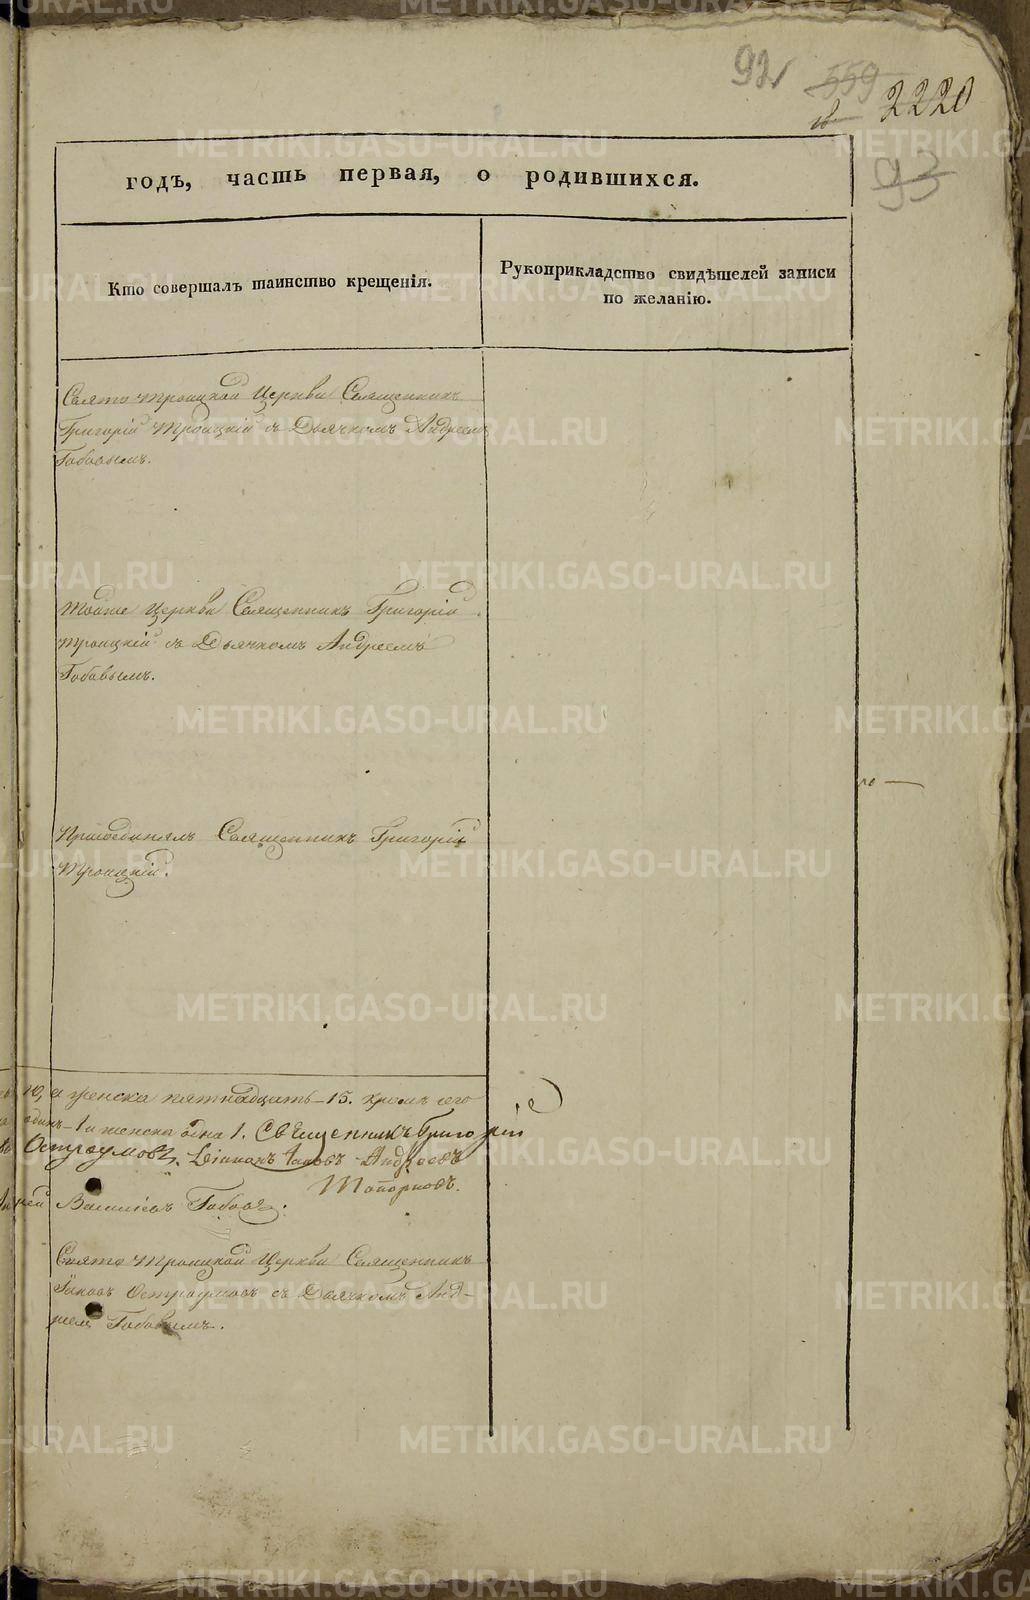 92 559
2220
93
годъ, часть первая, о родившихся.
Кто совершалъ таинство крещенія.
Рукоприкладство свидѣтелей записи
по желанію.
Свято Троицкой Церкви Священникъ
Григорій Троицкій съ Дьячкомъ Андреемъ
Бабовымъ.
Тойже Церкви Священникъ Григорій
Троицкій съ Дьячкомъ Андреемъ
Бабовымъ.
Присоединялъ Священникъ Григорій
Троицкій.
10, а женска пятнадцать - 15. кромѣ сего
одинъ - 1 и женска одна 1. Священникъ Григорій
Остроумовъ. Діаконъ Іаковъ Андреевъ
Топорковъ.
Бабовъ.
Свято Троицкой Церкви Священникъ
Іаковъ Остроумовъ съ Дьячкомъ Анд-
реемъ Бабовымъ.
METRIKI.GASO-URAL.RU